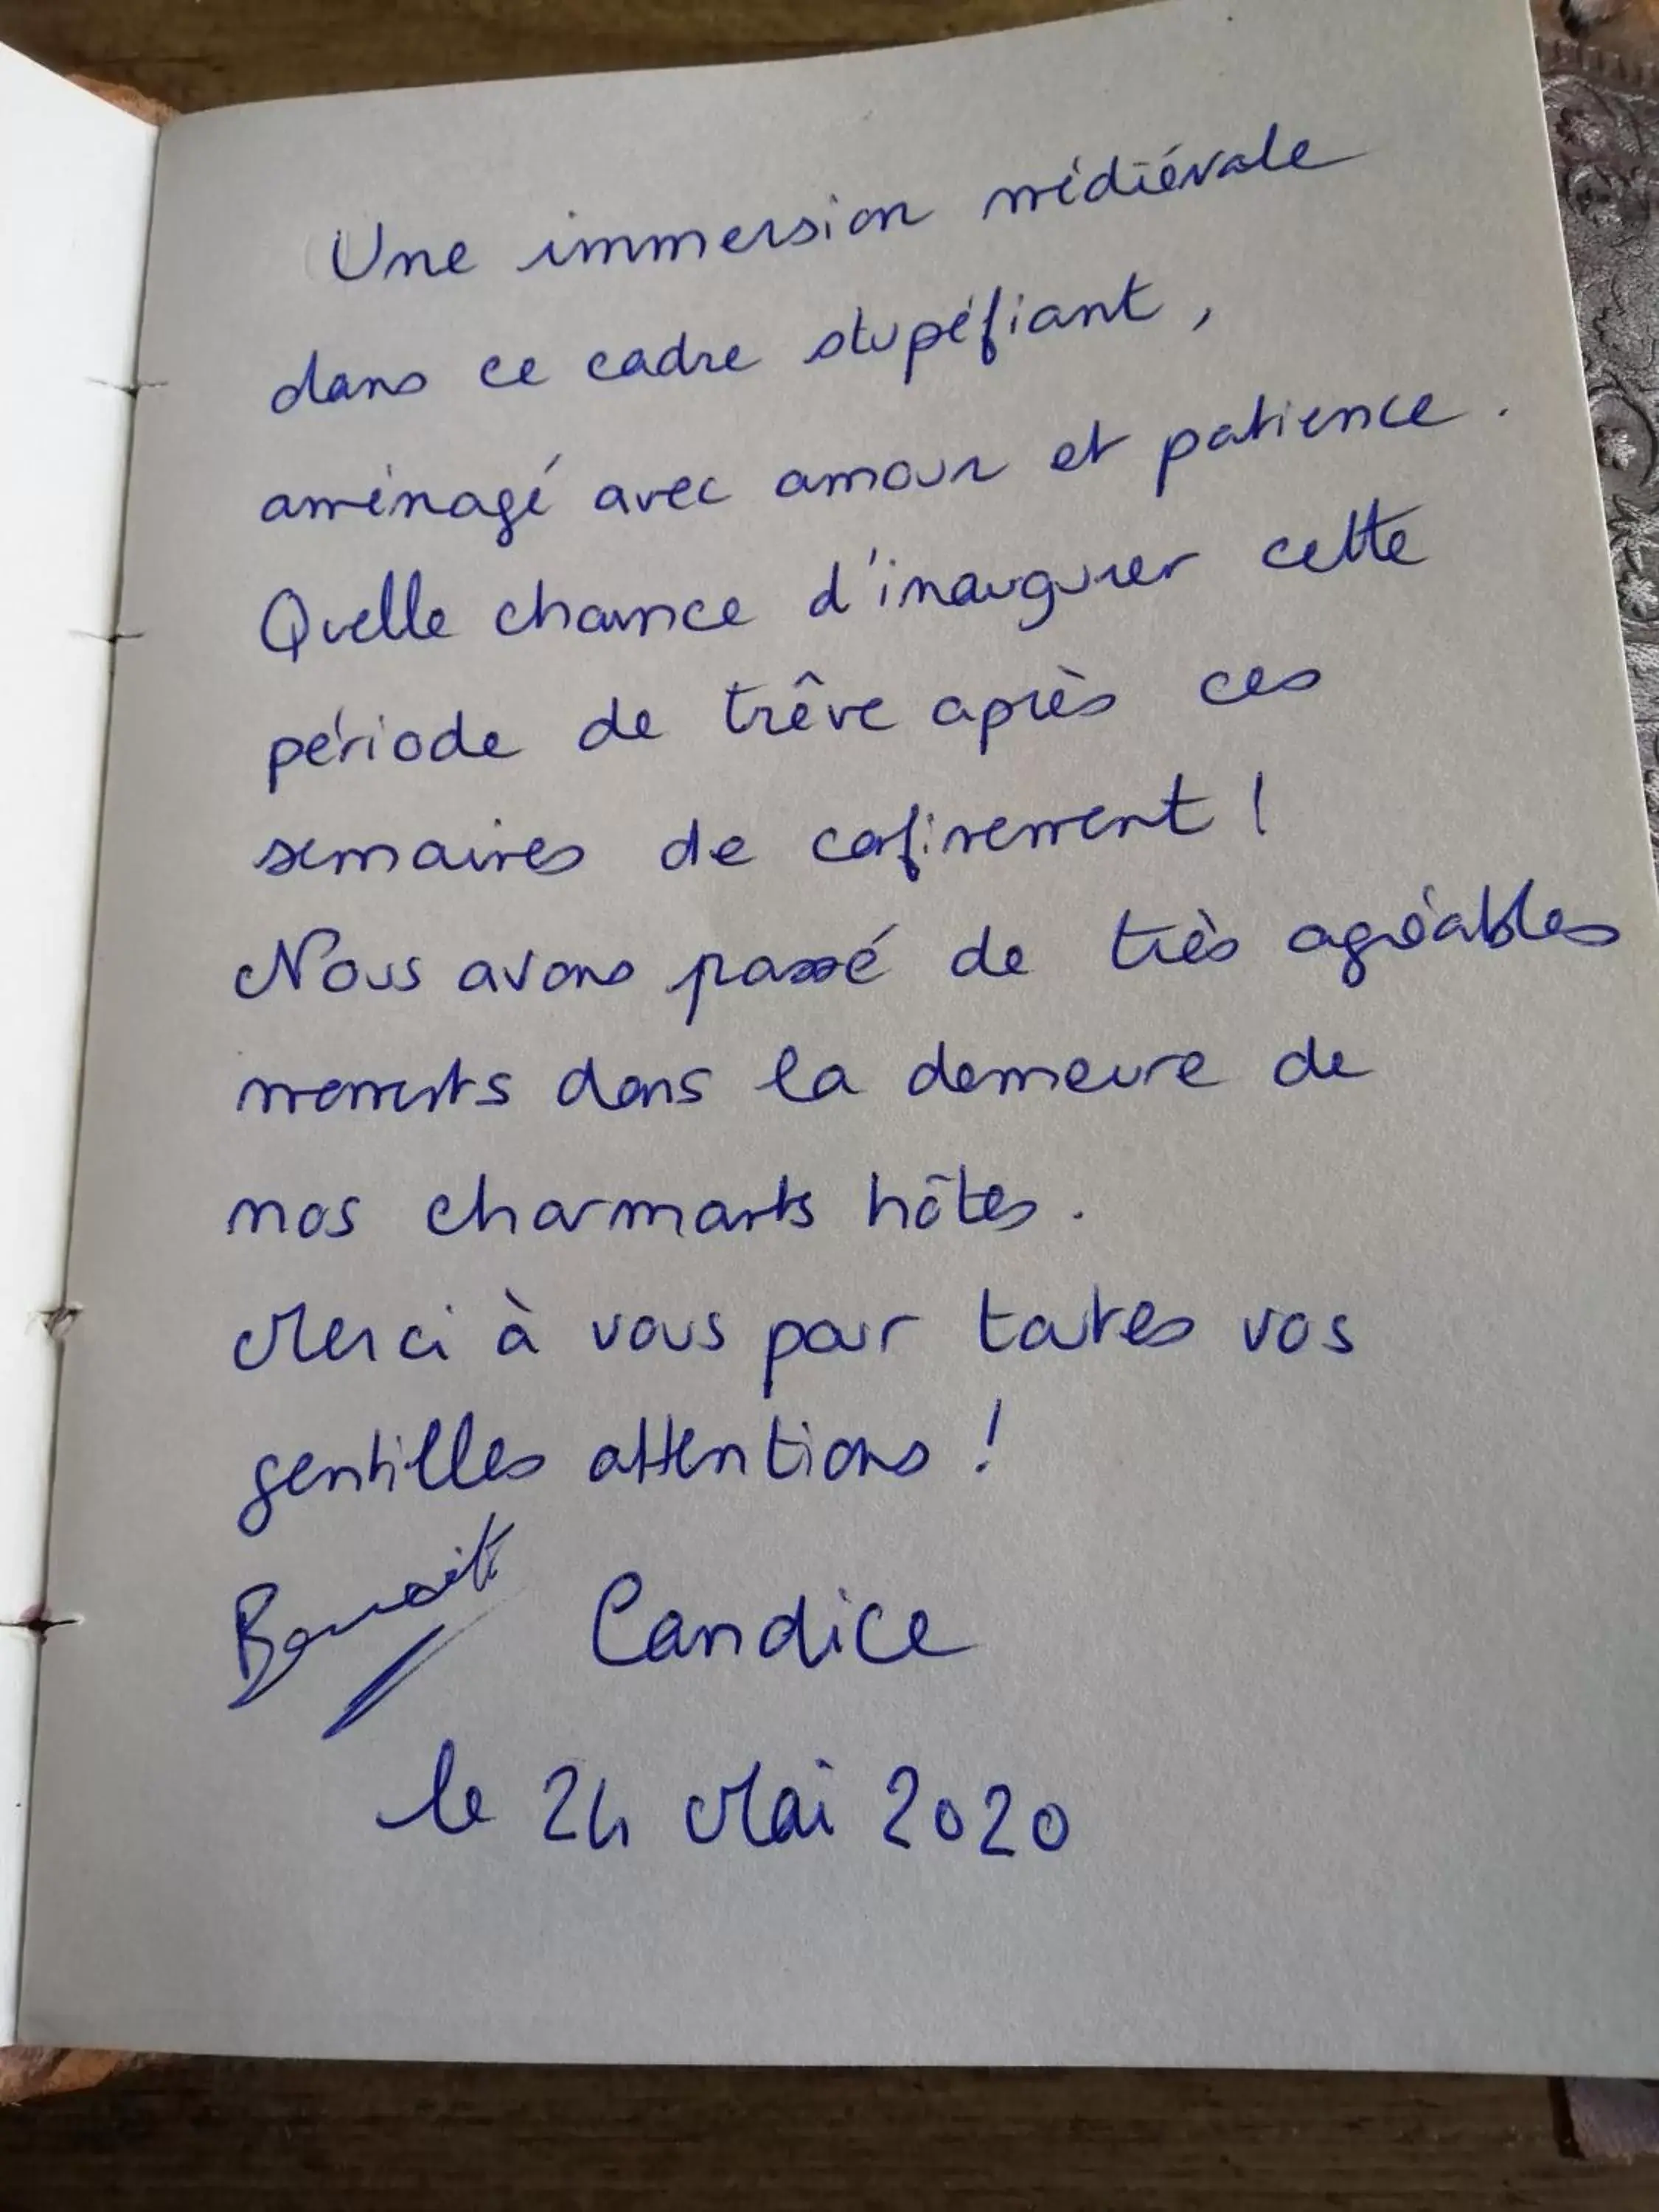 Une immersion médiévale
dans ce cadre stupéfiant,
aménagé avec amour et patience.
Quelle chance d'inaugurer cette
période de trêve après ces
semaines de confinement !
Nous avons passé de très agréables
moments dans la demeure de
nos charmants hôtes.
Merci à vous pour toutes vos
gentilles attentions !
Benoit Candice
le 24 Mai 2020